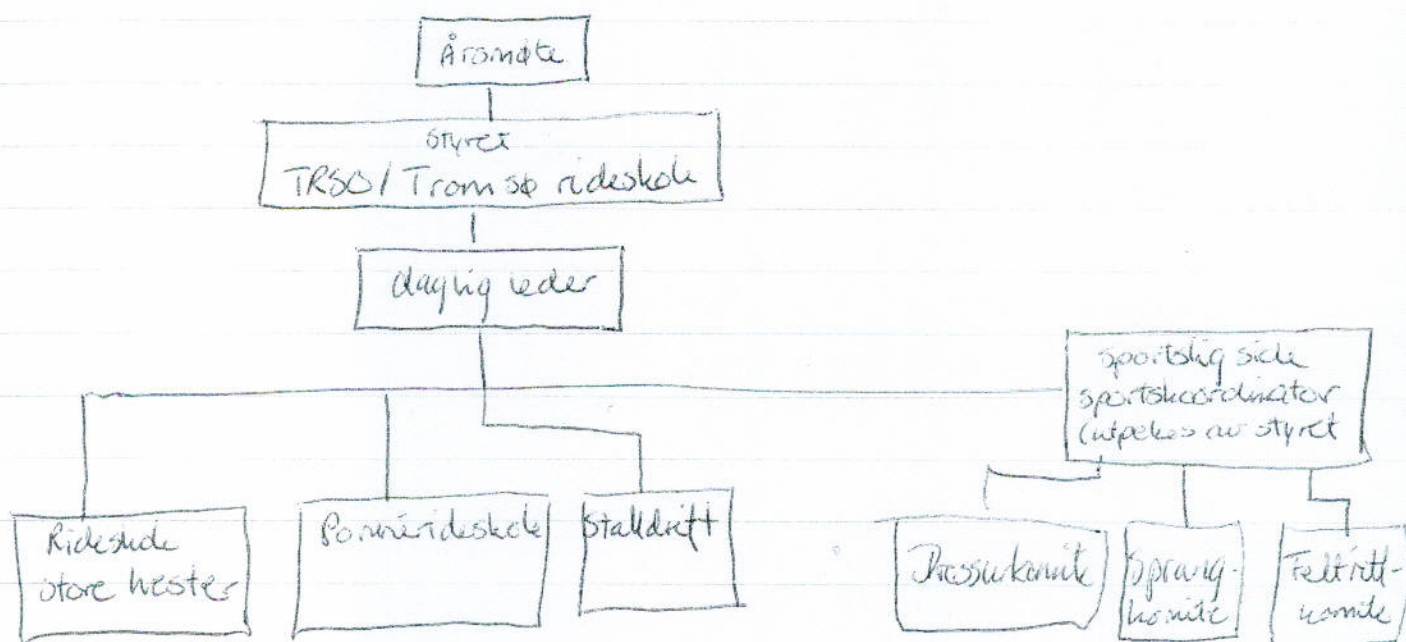 Årsmøte
Styret
TRSO / Tromsø rideskole
daglig leder
sportslig side
sportskoordinator
(utpekes av styret
Rideskole
store hester
Ponnirideskole
Stalldrift
Dressurkomite
Sprang-
komite
Feltritt-
komite